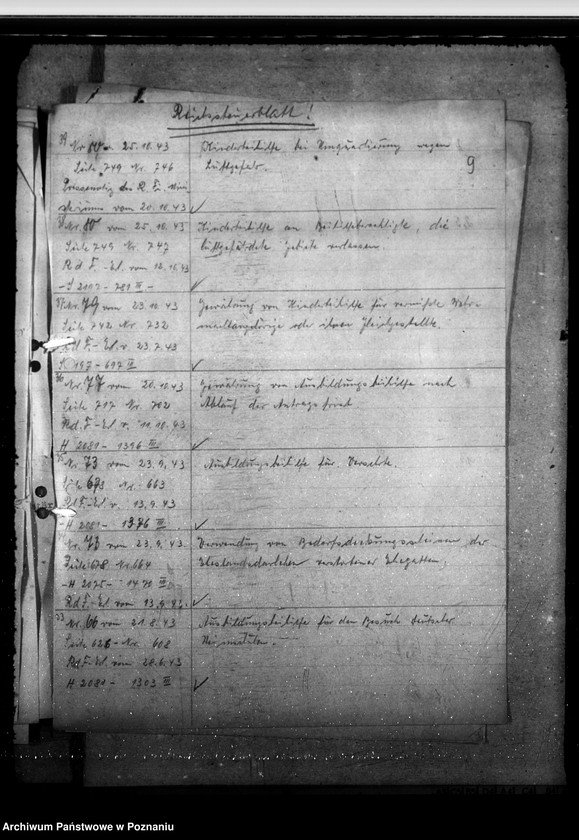 Reichssteuerblatt!
9
39 Nr. v. 25.10.43 Kinderbeihilfe bei Umquartierung wegen
Seite 749 Nr. 746 Luftgefahr.
des R. F. Mini
vom 20.10.43 ✓
38 Nr. 80 vom 25.10.43 Kinderbeihilfe an Beihilfeberechtigte, die
Seite 749 Nr. 747 luftgefährdete Gebiete verlassen.
R d F.-Erl. vom 12.10.43
- S 2107 - 781 III - ✓
37 Nr. 79 vom 23.10.43 Gewährung von Kinderbeihilfe für vermißte Wehr-
Seite 742 Nr. 732 machtangehörige oder ihnen Gleichgestellte.
Rd. F.-Erl. v. 23.7.43
197 - 697 III ✓
36 Nr. 77 vom 20.10.43 Gewährung von Ausbildungsbeihilfe nach
Seite 717 Nr. 702 Ablauf der Antragsfrist.
Rd. F.-Erl. v. 11.10.43
H 2081 - 1396 III ✓
35 Nr. 73 vom 23.9.43 Ausbildungsbeihilfe für
Seite 673 Nr. 663
Rd F.-Erl. v. 13.9.43
- H 2081 - 1376 III ✓
Nr. 73 vom 23.9.43. Verwendung von Bedarfsdeckungsscheinen der
Seite 678 Nr. 664 Ehestandsdarlehen verstorbener Ehegatten.
- H 2075 - 1470 III
Rd F.-Erl. vom 13.9.43. ✓
33 Nr. 66 vom 21.8.43 Ausbildungsbeihilfe für den Besuch deutscher
Seite 626 - Nr. 608
Rd F.-Erl. vom 28.6.43
H 2081 - 1303 III ✓
Archiwum Państwowe w Poznaniu